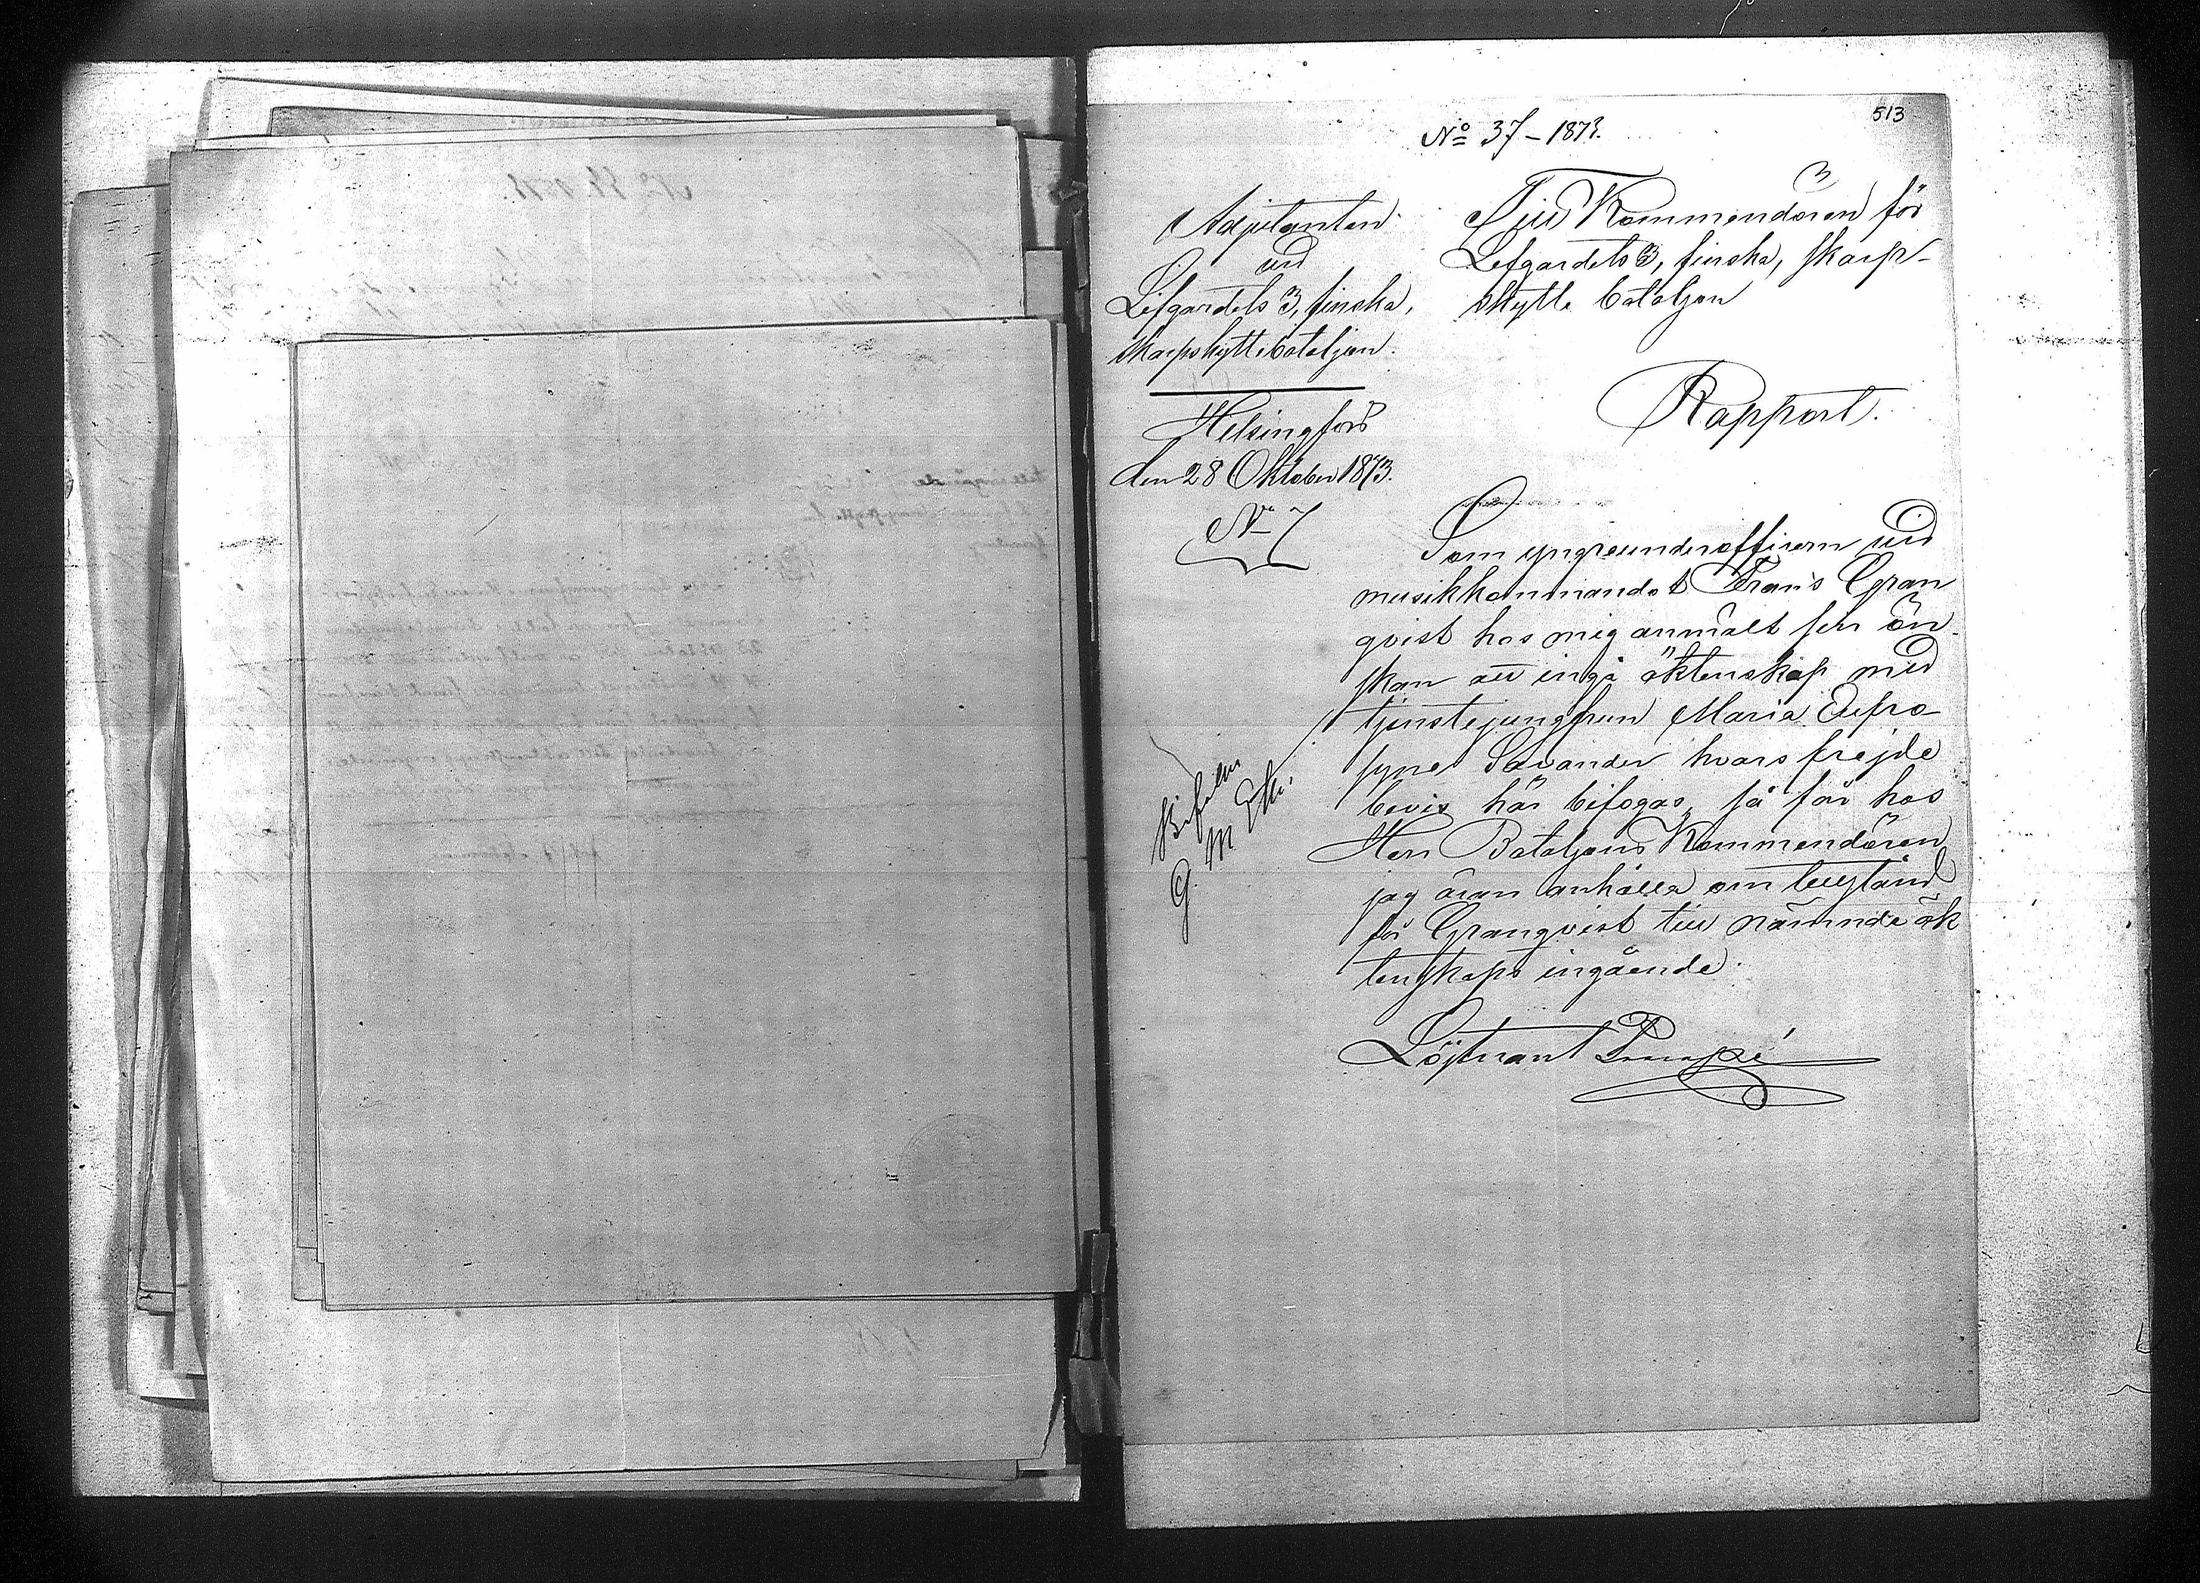 513
No 37 – 1873.
Adjutanten
vid
Lifgardets 3, finska,
skarpskyttebataljon.
Helsingfors
den 28 Oktober 1873.
No 7
Till Kommendören för
Lifgardets 3, finska, skarp-
skytte bataljon
Rapport.
Som yngreunderofficern vid
musikkommandot Frans Gran
qvist hos mig anmält sin ön
skan att ingå äktenskap med
tjenstejungfrun Maria Eufro
syne Savander hvars frejde
bevis här bifogas, så får hos
Herr Bataljons Kommendören
jag äran anhålla om tillstånd
för Granqvist till nämnde äk
tenskaps ingående.
Löjtnant
Bifalles
G. M.